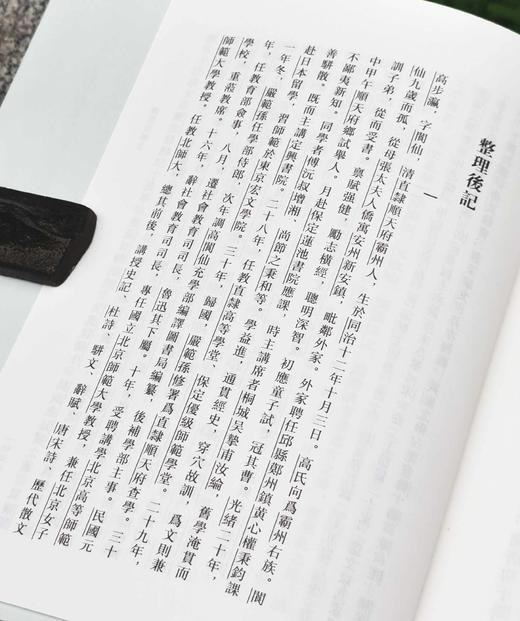 整理後記
一
高步瀛，字閬仙，清直隸順天府霸州人，生於同治十二年十月三日。高氏向爲霸州右族。閬
仙九歲而孤，從母張太夫人僑寓安州新安鎮，毗鄰外家。外家聘任邱縣鄚州鎮黃心權秉鈞課
訓子弟，從而受書。稟賦強健，勵志橫經，聰明深智。初應童子試，冠其曹。光緒二十年，
中甲午順天府鄉試舉人。月赴保定蓮池書院應課，時主講席者桐城吳摯甫汝綸，舊學淹貫而
不鄙夷新知。同學者傅沅叔增湘、尚節之秉和等。學益進，通貫經史，穿穴故訓，爲文則兼
善駢散。既而主講定興書院。二十八年，任教直隸高等學堂、保定優級師範學堂。二十九年，
赴日本留學，習師範於東京宏文學院。三十年，歸國，嚴範孫修署爲直隸順天府查學。三十
一年冬，嚴範孫任學部侍郎，次年調高閬仙充學部編譯圖書局編纂，後補學部主事。民國元
年，任教育部僉事，八月，遷社會教育司司長，魯迅其下屬。十年，受聘講學北京高等師範
學校，重蒞教席。十六年，辭社會教育司司長，專任國立北京師範大學教授，兼任北京女子
師範大學教授。任教北師大，總其前後，講授史記、杜詩、駢文、辭賦、唐宋詩、歷代散文